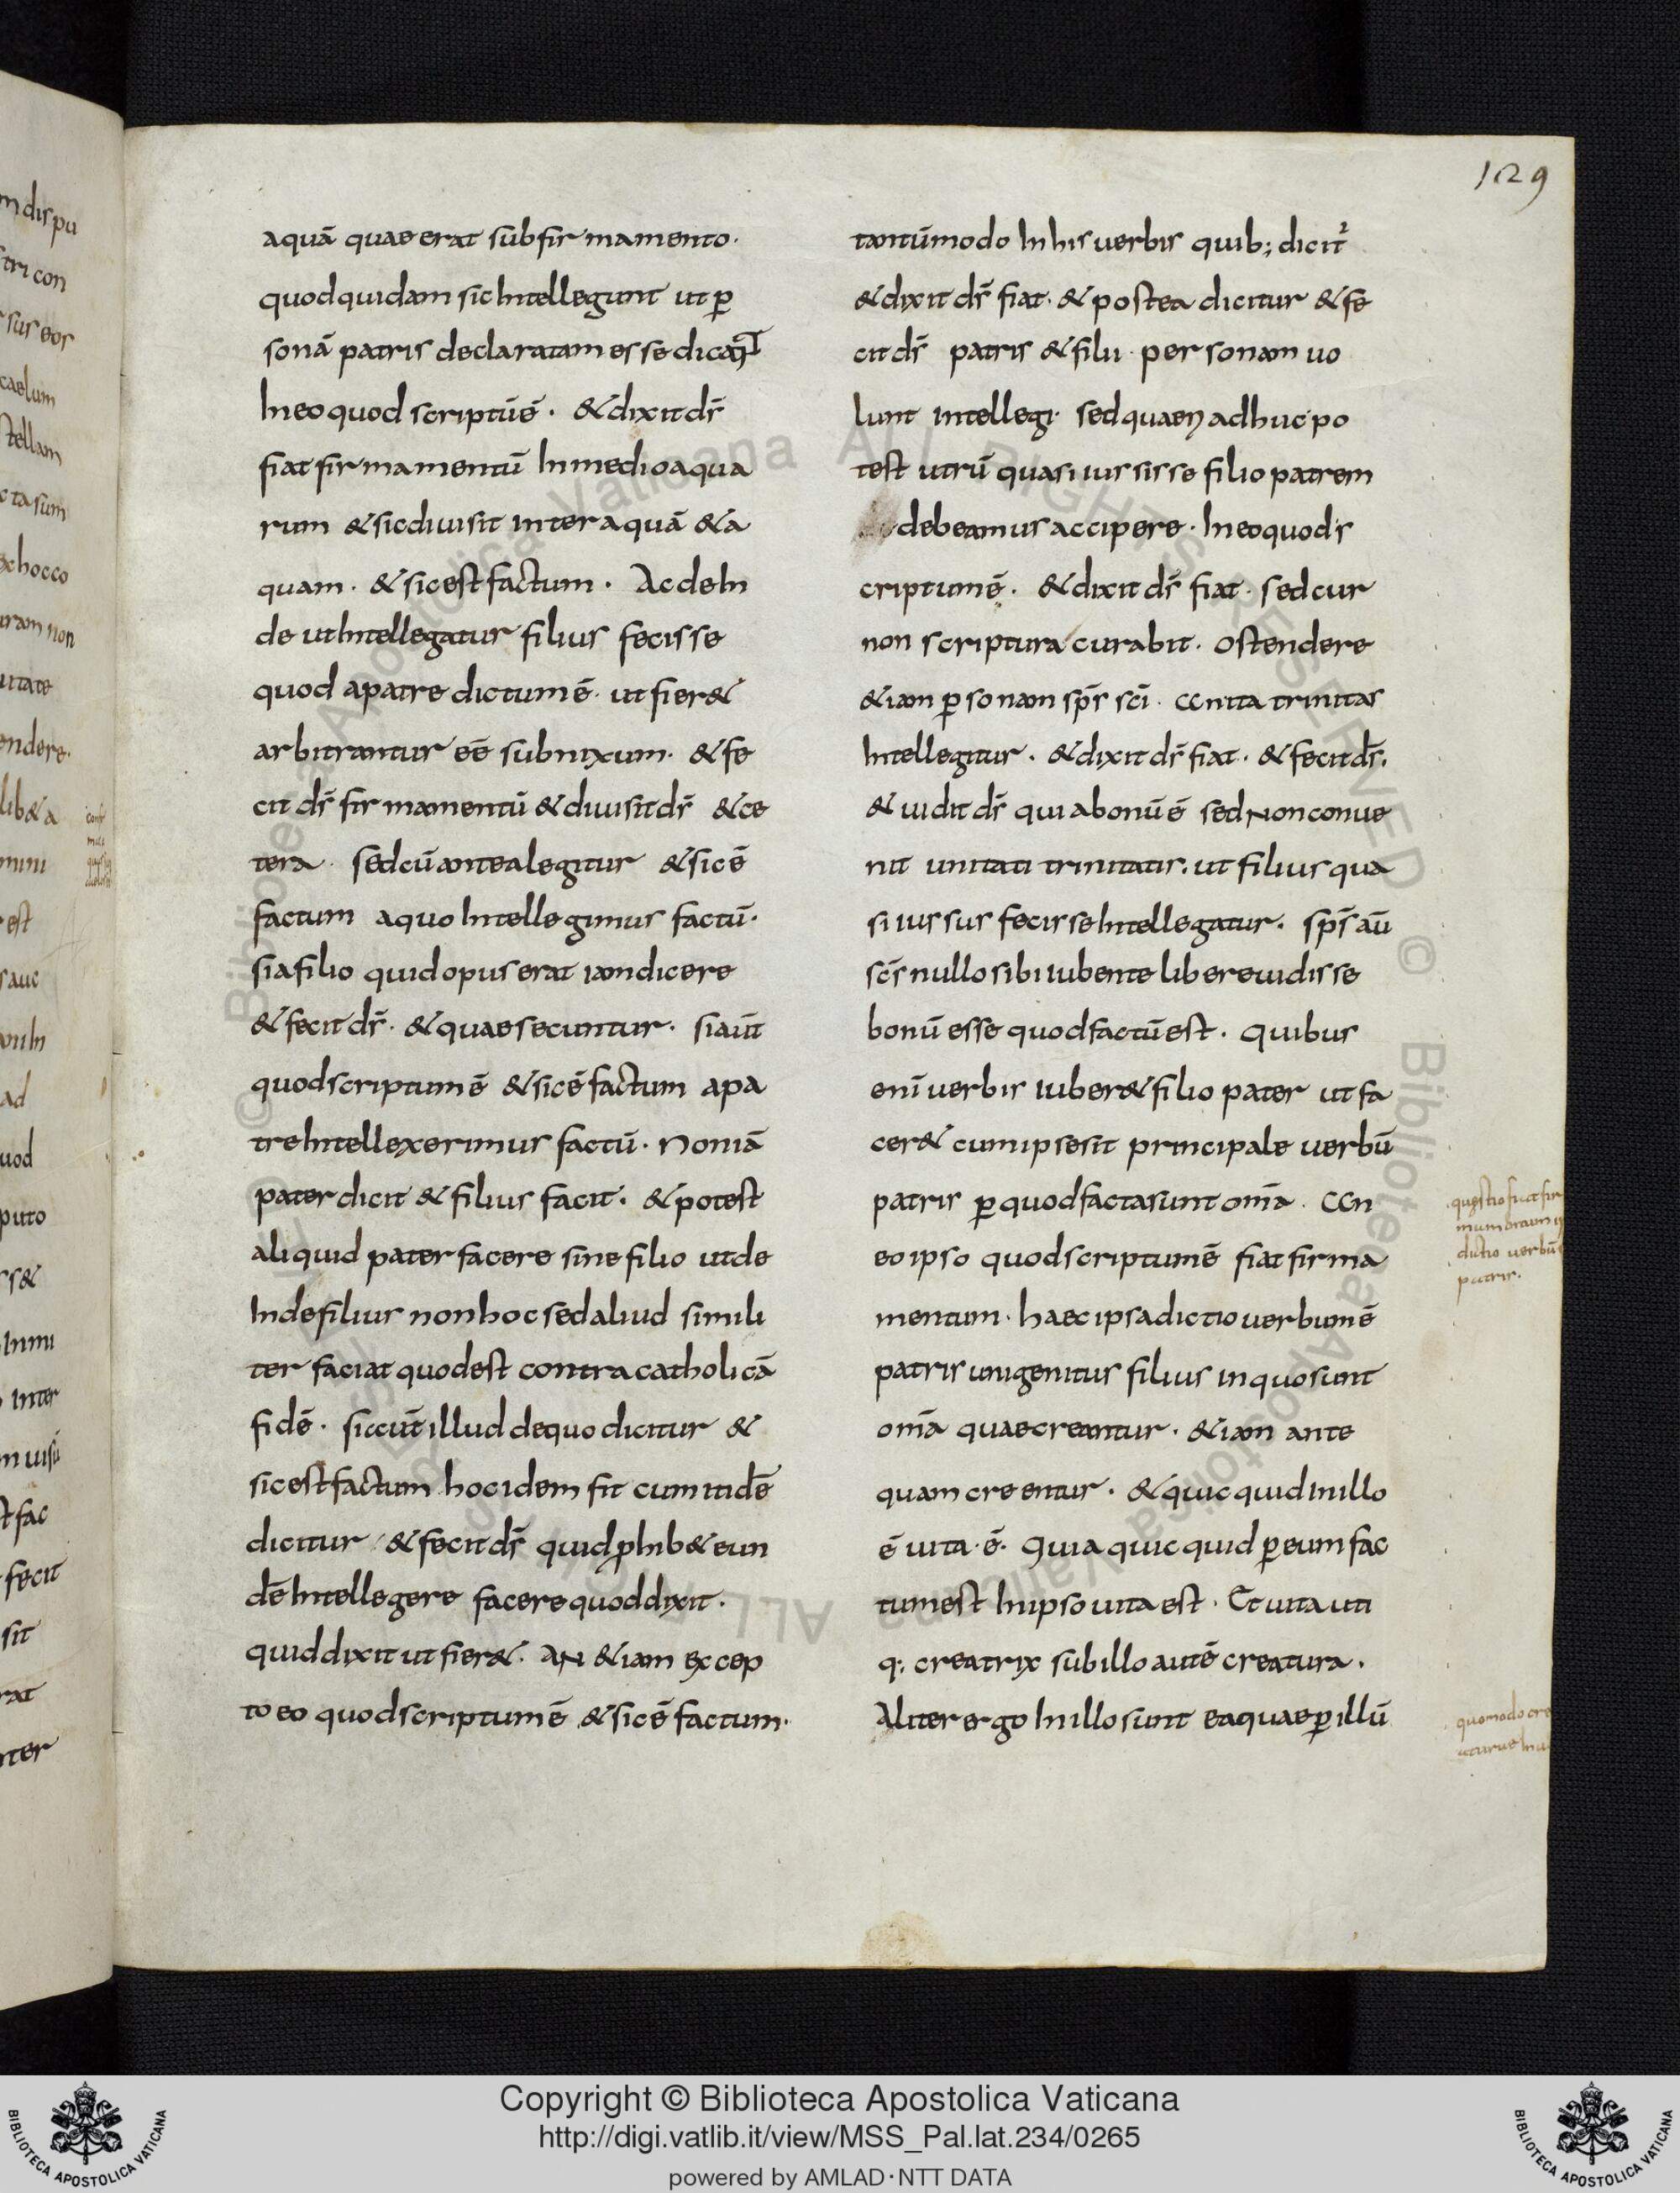 129
aquā quae erat sub firmamento·
quod quidam sic Intellegunt ut ꝑ
sonā patris declaratam esse dicaɳ̄t
In eo quod scriptū ē· & dixit dr̄
fiat firmamentū In medio aqua
rum & sic diuisit inter aquā & a
quam· & sic est factum· Ac deIn
de ut Intellegatur filius fecisse
quod a patre dictum ē· ut fier&
arbitrantur eē subnixum· & fe
cit dr̄ firmamentū & diuisit dr̄ & ce
tera· sed cū antea legitur & sic ē
factum a quo Intellegimus factū·
si a filio quid opus erat iam dicere
& fecit dr̄· & quae secuntur· si aūt
quod scriptum ē & sic ē factum a pa
tre Intellexerimus factū· Non iā
pater dicit & filius facit· & potest
aliquid pater facere sine filio ut de
Inde filius non hoc sed aliud simili
ter faciat quod est contra catholicā
fidē· sic cūt illud de quo dicitur &
sic est factum hoc idem fit cum itidē
dicitur & fecit dr̄ quid ꝓhib& eun
dē Intellegere facere quod dixit·
quid dixit ut fier&· AN &iam excep
to eo quod scriptum ē & sic ē factum·
tantūmodo In his uerbis quib; dicit᷑
& dixit dr̄ fiat· & postea dicitur & fe
cit dr̄ patris & filii· personam uo
lunt intellegi· sed quaeɳ adhuc po
test utrū quasi iussisse filio patrem
debeamus accipere· In eo quod s
criptum ē· & dixit dr̄ fiat· sed cur
non scriptura curabit· ostendere
&iam ꝑsonam sp̄s sc̄i· an ita trinitas
Intellegitur· & dixit dr̄ fiat· & fecit dr̄·
& uidit dr̄ quia bonū ē sed Non conue
nit unitati trinitatis· ut filius qua
si iussus fecisse Intellegatur· sp̄s aū
sc̄s nullo sibi iubente libere uidisse
bonū esse quod factū est· Quibus
enī uerbis iuber& filio pater ut fa
cer& cum ipse sit principale uerbū
patris ꝑ quod facta sunt om̄a· An
eo ipso quod scriptum ē fiat firma
mentum· haec ipsa dictio uerbum ē
patris unigenitus filius in quo sunt
om̄a quae creantur· &iam ante
quam creentur· & quicquid In illo
ē uita· ē· Quia quicquid ꝑ eum fac
tum est In ipso uita est· Et uita uti
q; creatrix sub illo autē creatura·
Aliter ergo In illo sunt ea quae ꝑ illū
dictio uerbū
patris·
quomodo cre
Copyright © Biblioteca Apostolica Vaticana
http://digi.vatlib.it/view/MSS_Pal.lat.234/0265
powered by AMLAD·NTT DATA
BIBLIOTECA APOSTOLICA VATICANA
BIBLIOTECA APOSTOLICA VATICANA